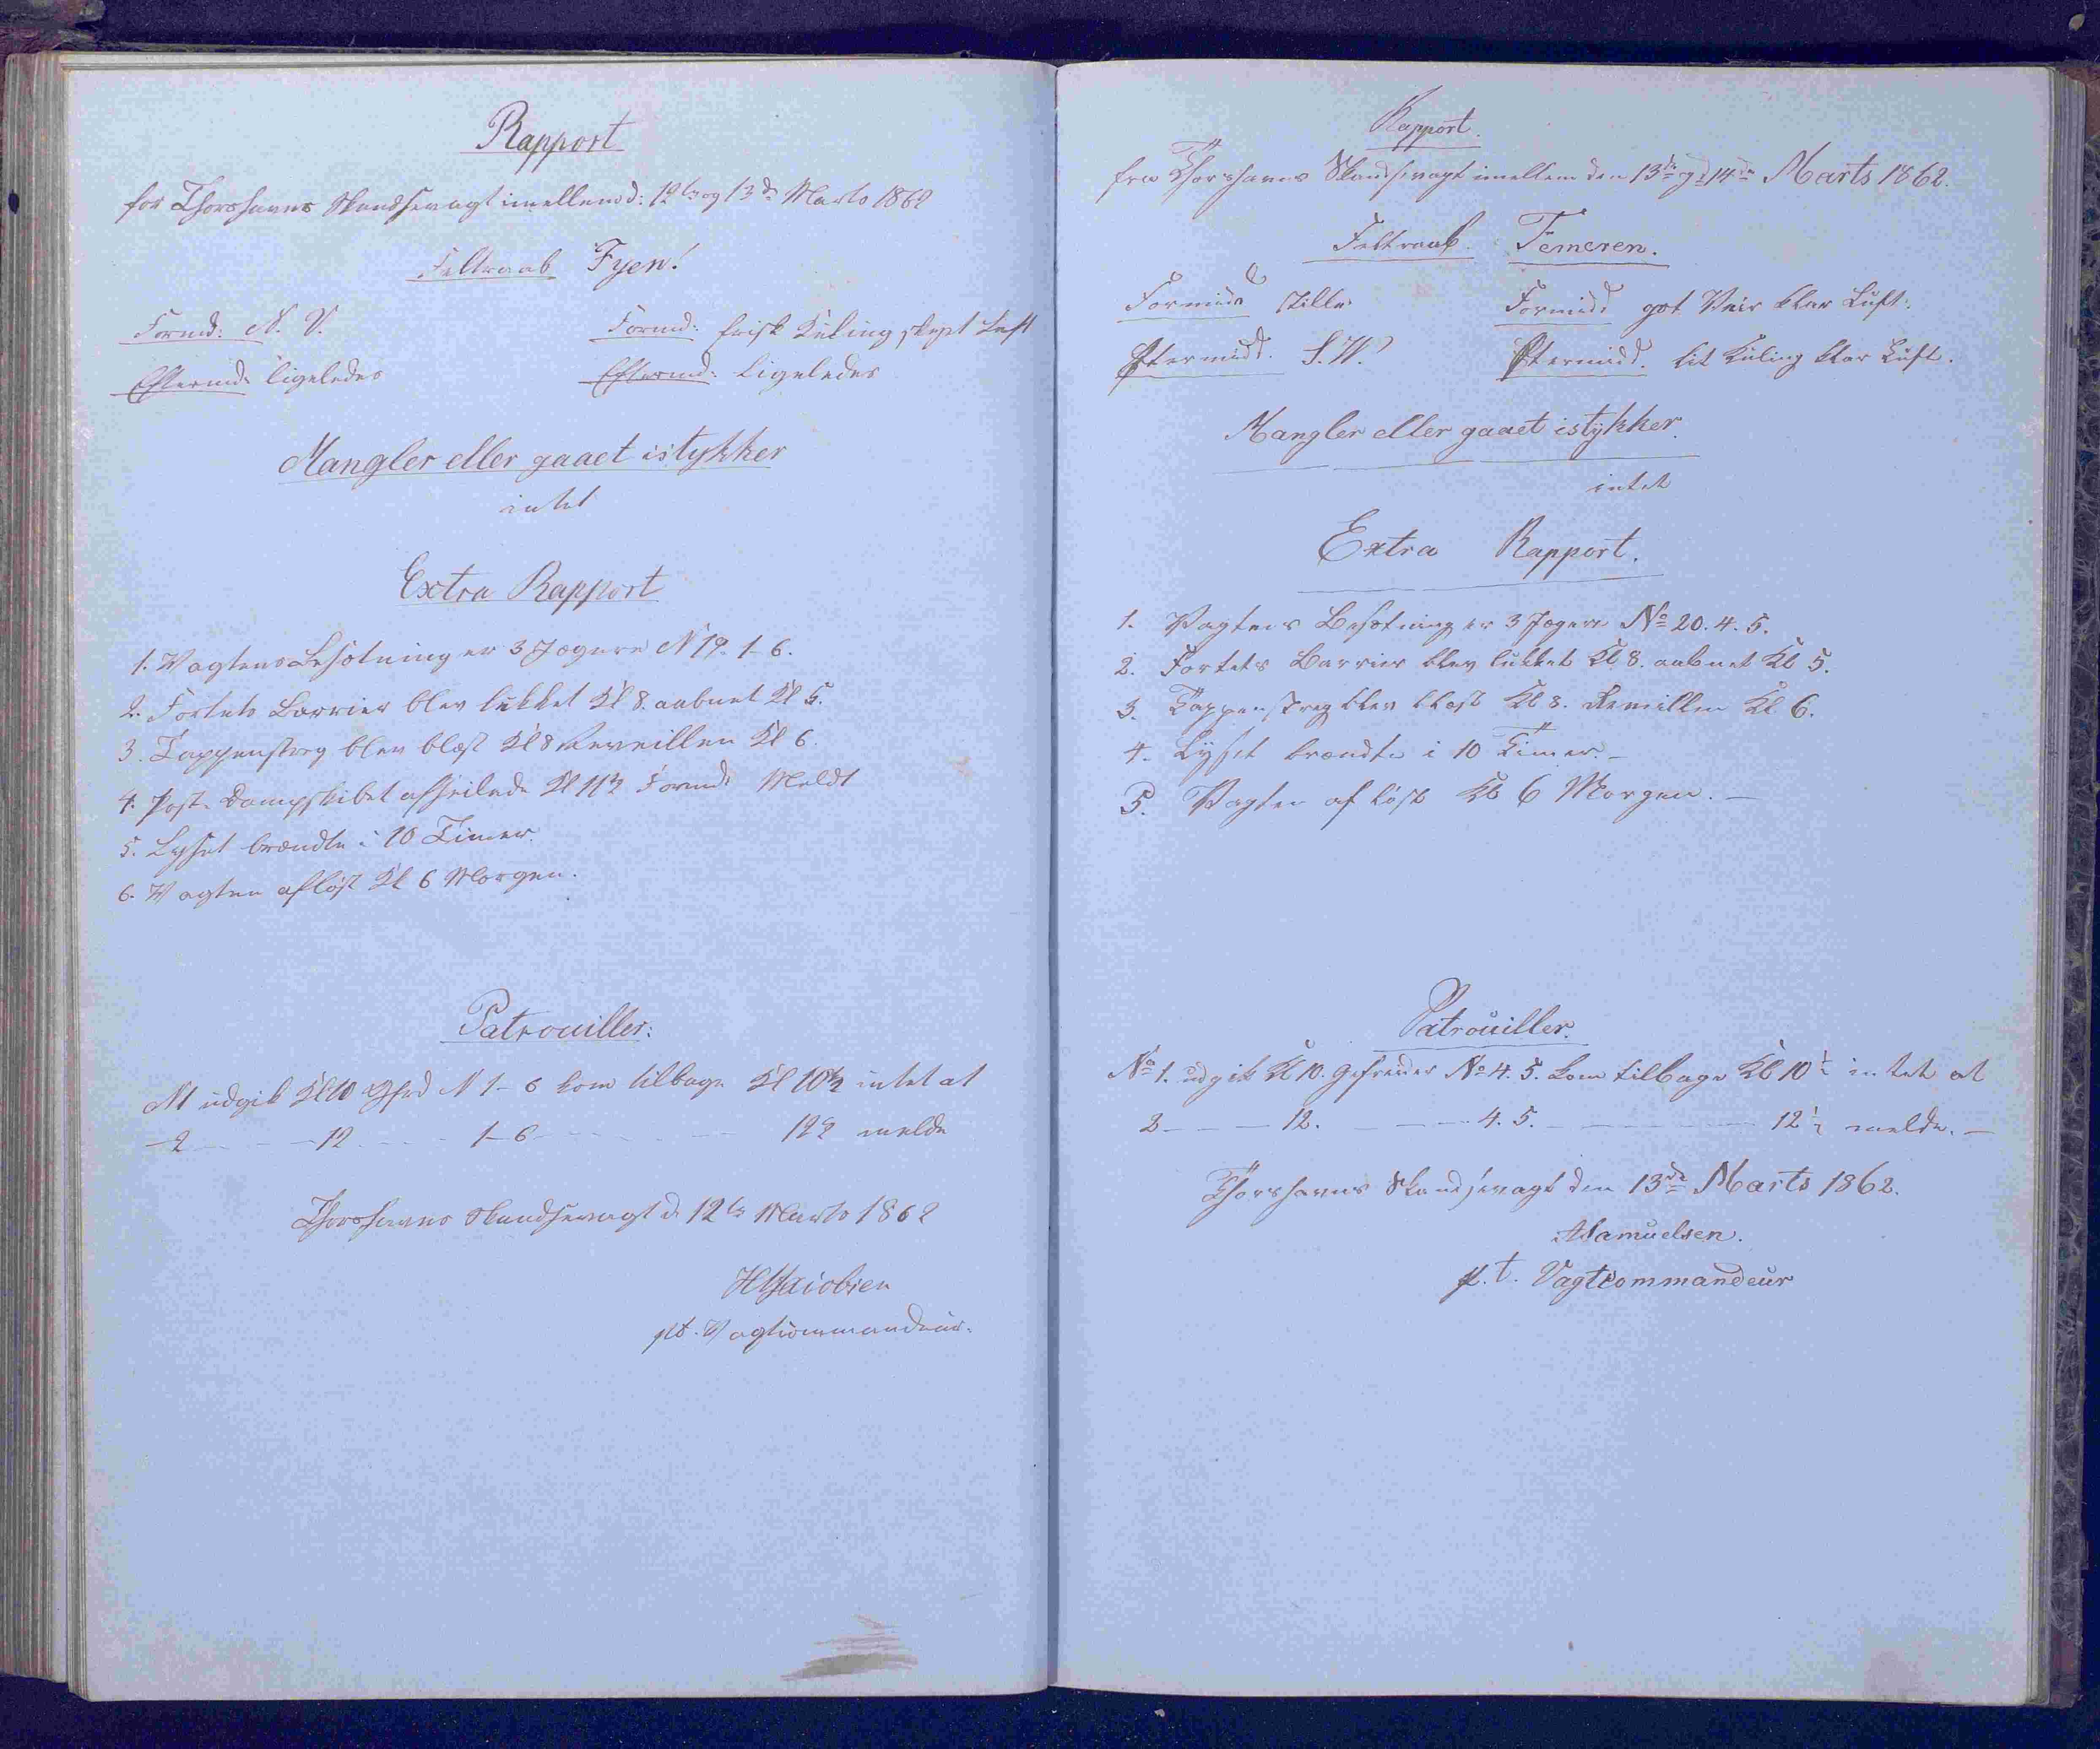 Rapport
for Thorshavns Skandsevagt imellem d: 12te og 13de Marts 1862
Feltraab Fyen!
Formd: N. V. Formd: frisk Kuling skyet Luft
Eftermd: ligeledes Eftermd: ligeledes
Mangler eller gaaet istykker
intet
Extra Rapport
1. Vagtens Besætning er 3 Jægere N 19. 1-6.
2. Fortets Barrier blev lukket Kl 8. aabnet Kl 5.
3. Tappenstreg blev blæst Kl 8 Reveillen Kl 6.
4. Post-Dampskibet afseilede Kl 11½ Formd: Meldt
5. Lyset brændte i 10 Timer.
6. Vagten afløst Kl 6 Morgen.
Patrouiller:
N1 udgik Kl 10 Gfrd N 1-6 kom tilbage Kl 10½ intet at
-2 - - - 12 - - - 1-6 - - - - - - 12½ melde
Thorshavns Skandsevagt d. 12te Marts 1862
Jacobsen
pt. Vagtcommandeur.
Rapport.
fra Thorshavns Skandsevagt imellem den 13de og 14de Marts 1862.
Feltraab. Femeren.
Formidd Stille Formidd got Veir klar Luft.
Eftermidd. S.W. Eftermidd. lit Kuling klar Luft.
Mangler eller gaaet istykker.
intet
Extra Rapport.
1. Vagtens Besætning er 3 Jægere No 20. 4. 5.
2. Fortets Barrier blev lukket Kl 8. aabnet Kl 5.
3. Tappenstreg blev blæst Kl 8. Reveillen Kl 6.
4. Lyset brændte i 10 Timer. -
5. Vagten afløst Kl 6 Morgen. -
Patrouiller.
No 1. udgik Kl 10. Gefreider No 4. 5. kom tilbage Kl 10½ intet at
2 - - - 12. - - - 4. 5. - - - - - - 12½ melde. -
Thorshavns Skandsevagt den 13de Marts 1862.
Samuelsen.
p. t. Vagtcommandeur